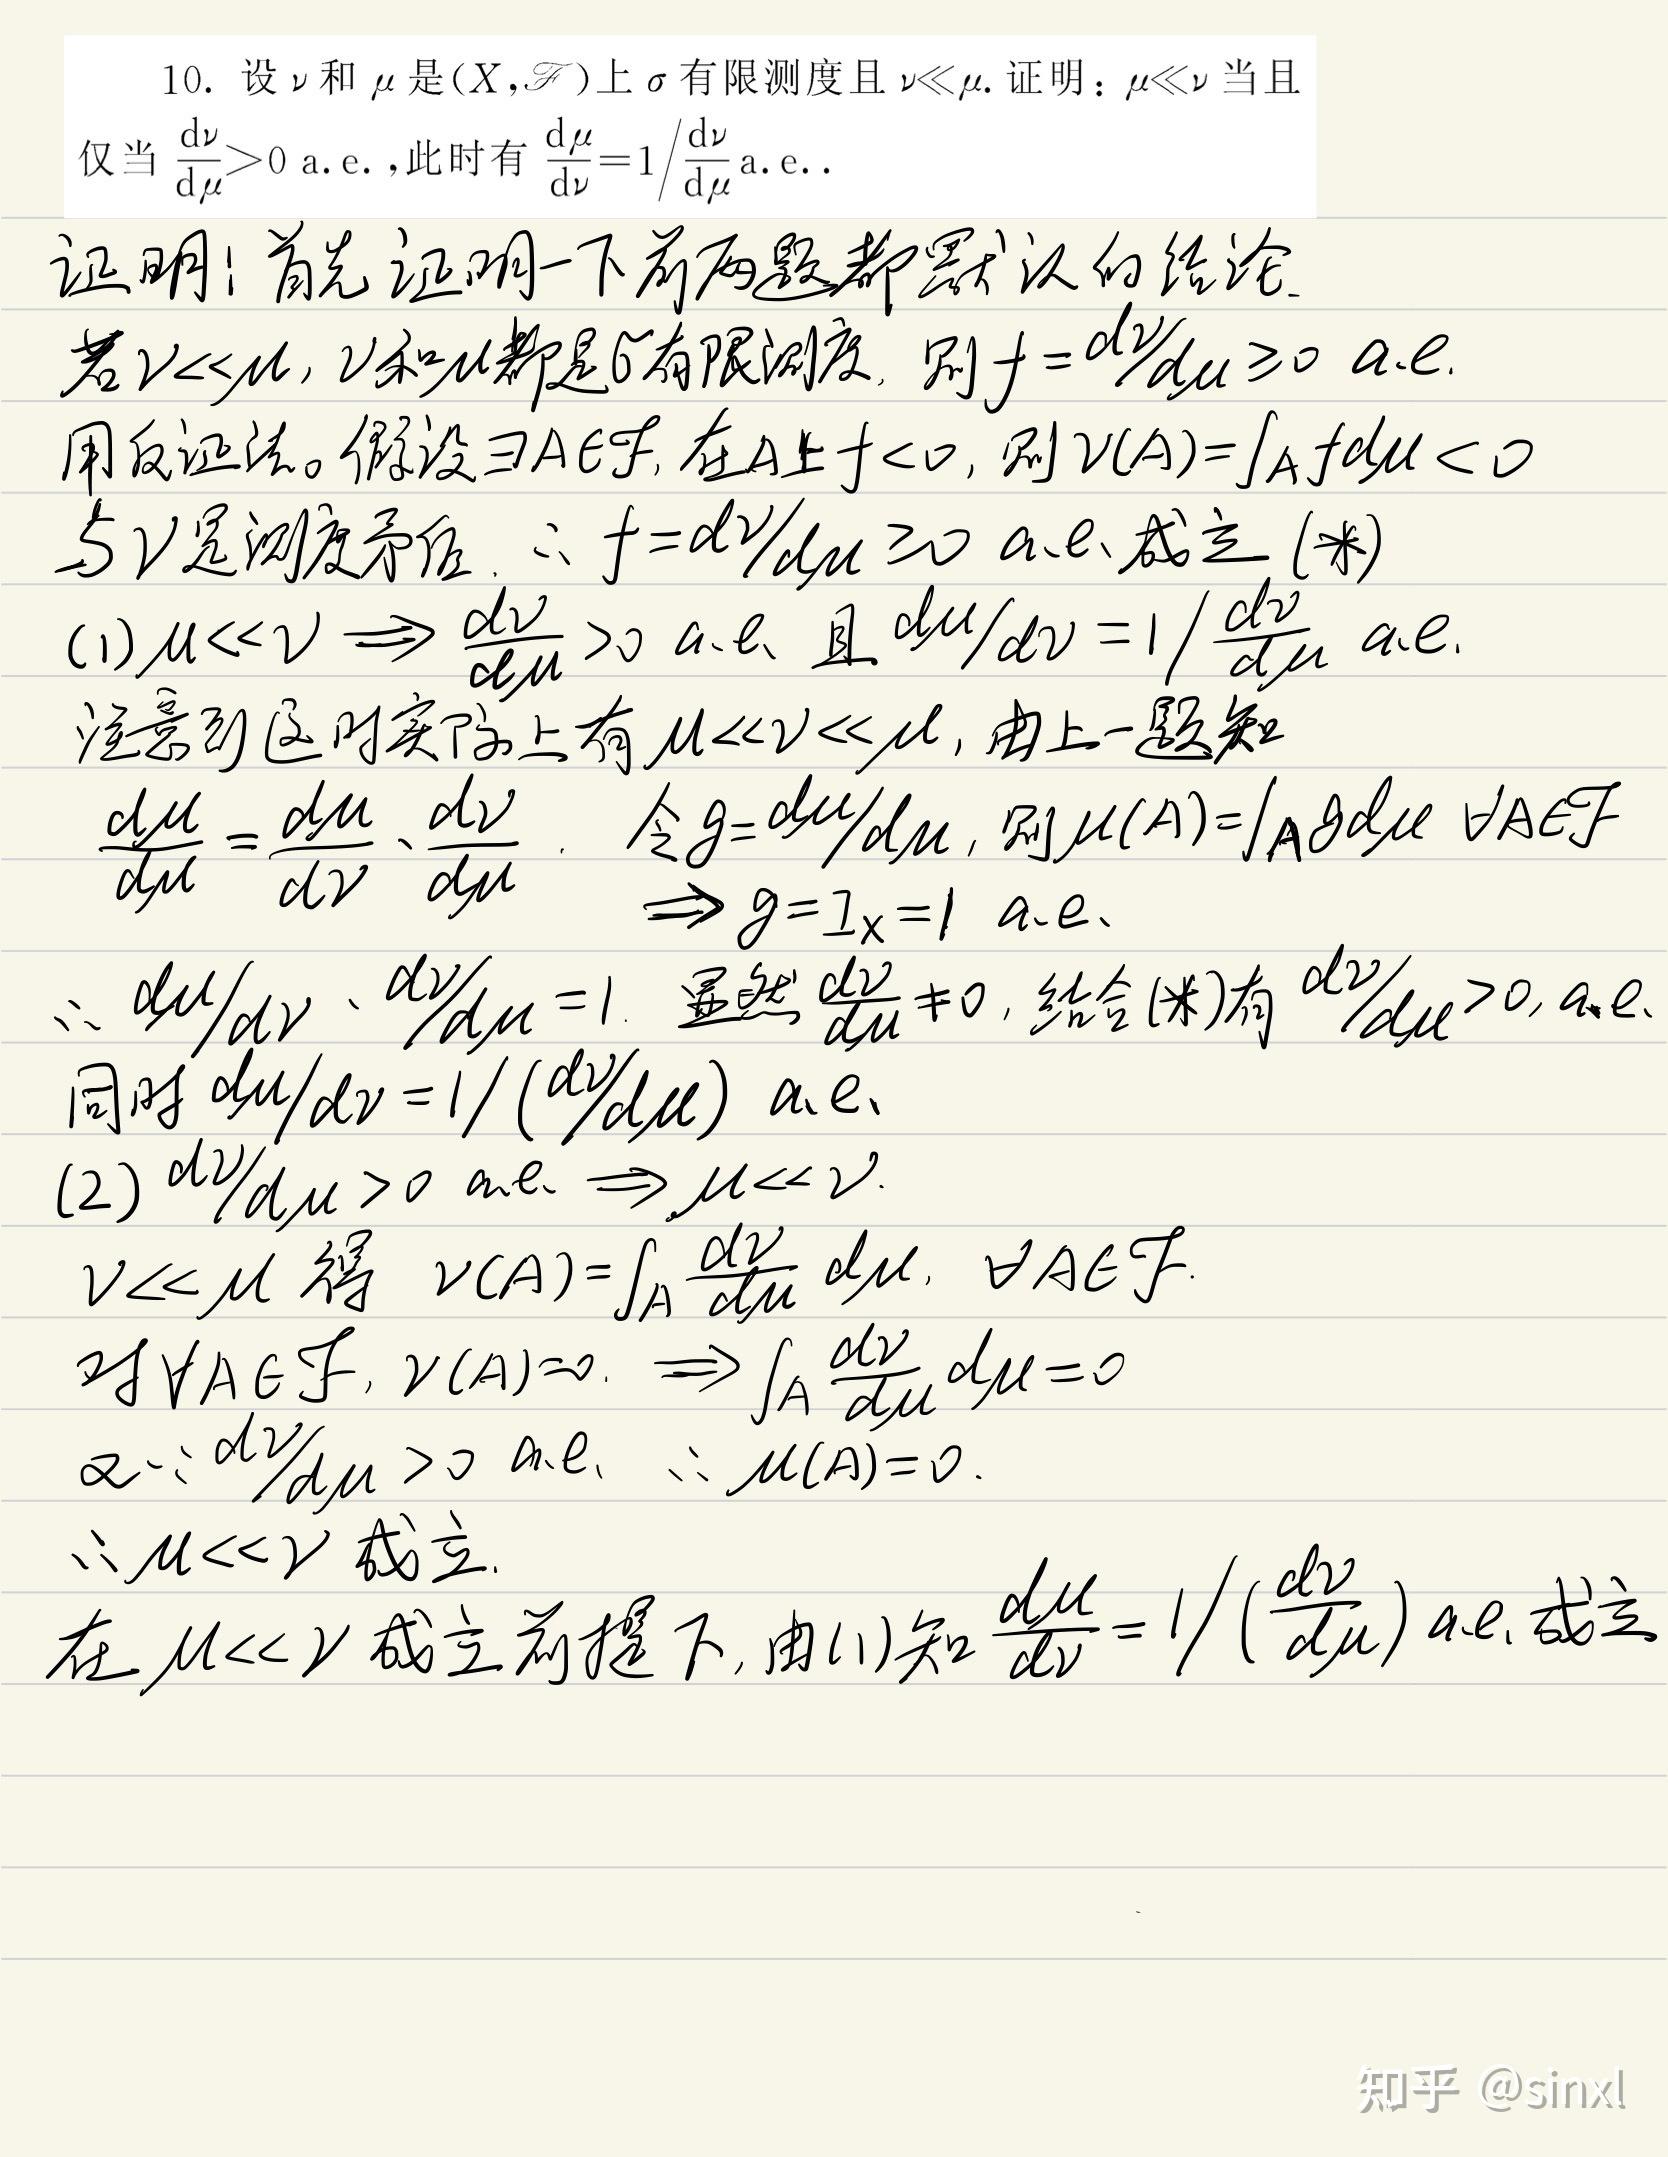 10. 设 ν 和 μ 是(X,ℱ)上 σ 有限测度且 ν≪μ. 证明：μ≪ν 当且
仅当 dν/dμ>0 a.e.,此时有 dμ/dν=1/dν/dμ a.e..
证明：首先证明一下前两题都默认的结论.
若ν<<μ, ν和μ都是σ有限测度, 则f=dν/dμ≥0 a.e.
用反证法。假设∃A∈ℱ, 在A上f<0, 则ν(A)=∫_A fdμ<0
与ν是测度矛盾. ∴ f=dν/dμ≥0 a.e.成立 (※)
(1) μ<<ν ⟹ dν/dμ>0 a.e. 且 dμ/dν=1/dν/dμ a.e.
注意到这时实际上有μ<<ν<<μ, 由上一题知
dμ/dμ=dμ/dν·dν/dμ. 令g=dμ/dμ, 则μ(A)=∫_A gdμ ∀A∈ℱ
⟹ g=1_X=1 a.e.
∴ dμ/dν·dν/dμ=1. 显然dν/dμ≠0, 结合(※)有dν/dμ>0, a.e.
同时 dμ/dν=1/(dν/dμ) a.e.
(2) dν/dμ>0 a.e. ⟹ μ<<ν.
ν<<μ 得 ν(A)=∫_A dν/dμ dμ, ∀A∈ℱ.
对∀A∈ℱ, ν(A)=0. ⟹ ∫_A dν/dμ dμ=0
又∵dν/dμ>0 a.e. ∴ μ(A)=0.
∴μ<<ν 成立.
在μ<<ν成立前提下, 由(1)知 dμ/dν=1/(dν/dμ) a.e.成立
知乎 @sinxl